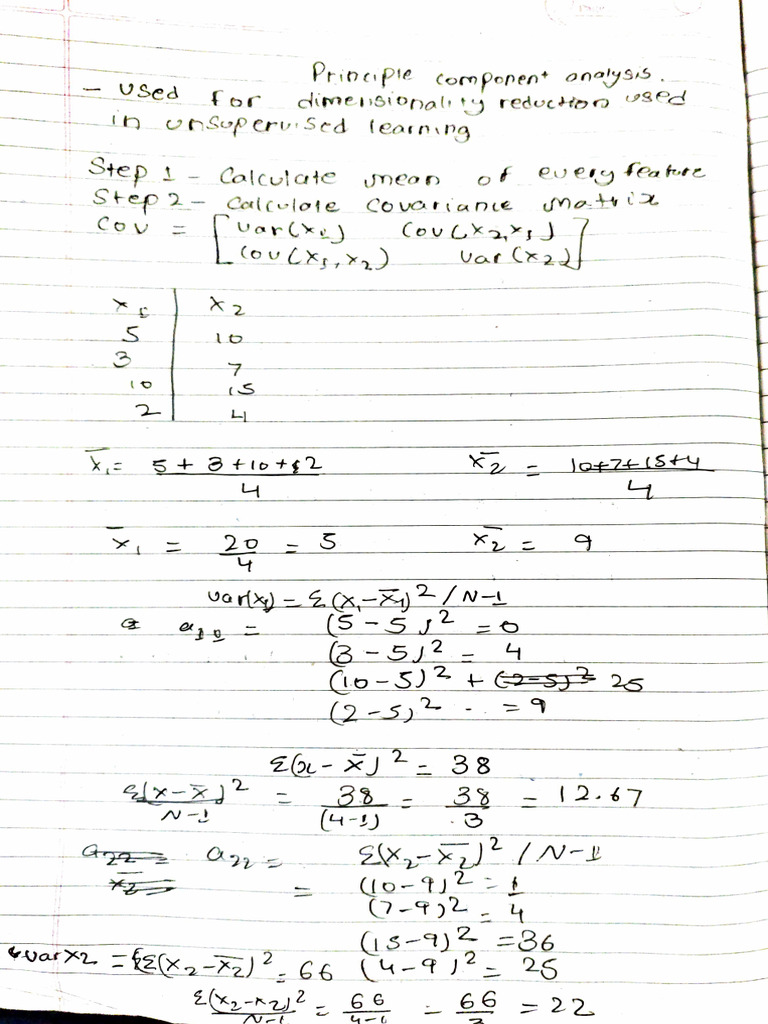 Principle component analysis.
- Used for dimensionality reduction used
in unsupervised learning
Step 1 - Calculate mean of every feature
Step 2 - Calculate covariance matrix
COV = [var(x1) Cov(x2,x1)
Cov(x1,x2) var(x2)]
x1 | x2
5 | 10
3 | 7
10 | 15
2 | 4
x̄1 = 5+3+10+2/4 x̄2 = 10+7+15+4/4
x̄1 = 20/4 = 5 x̄2 = 9
var(x1) = Σ(x1-x̄1)²/N-1
a11 = (5-5)² = 0
(3-5)² = 4
(10-5)² + 25
(2-5)² .. = 9
Σ(x-x̄)² = 38
Σ(x-x̄)²/N-1 = 38/(4-1) = 38/3 = 12.67
a22 = Σ(x2-x̄2)²/N-1
= (10-9)² = 1
(7-9)² = 4
(15-9)² = 36
var x2 = Σ(x2-x̄2)² = 66 (4-9)² = 25
Σ(x2-x2)²/N-1 = 66/4-1 = 66/3 = 22